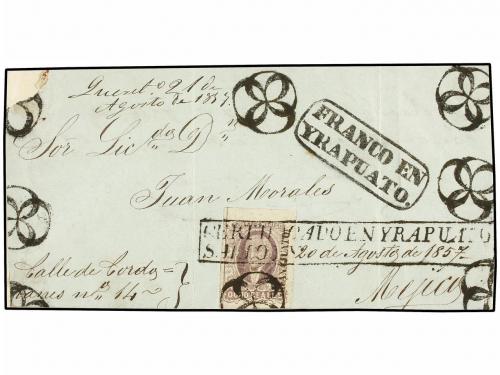 Queret.o 21 de
Agosto de 1857.
FRANCO EN
YRAPUATO.
Sor Lic.do D.n
Juan Morales
CERTIFICADO EN YRAPUATO
20 de Agosto de 1857
YRAPUATO
OCHO REALES
Calle de Cordo=
banes n.o 14
Mejico